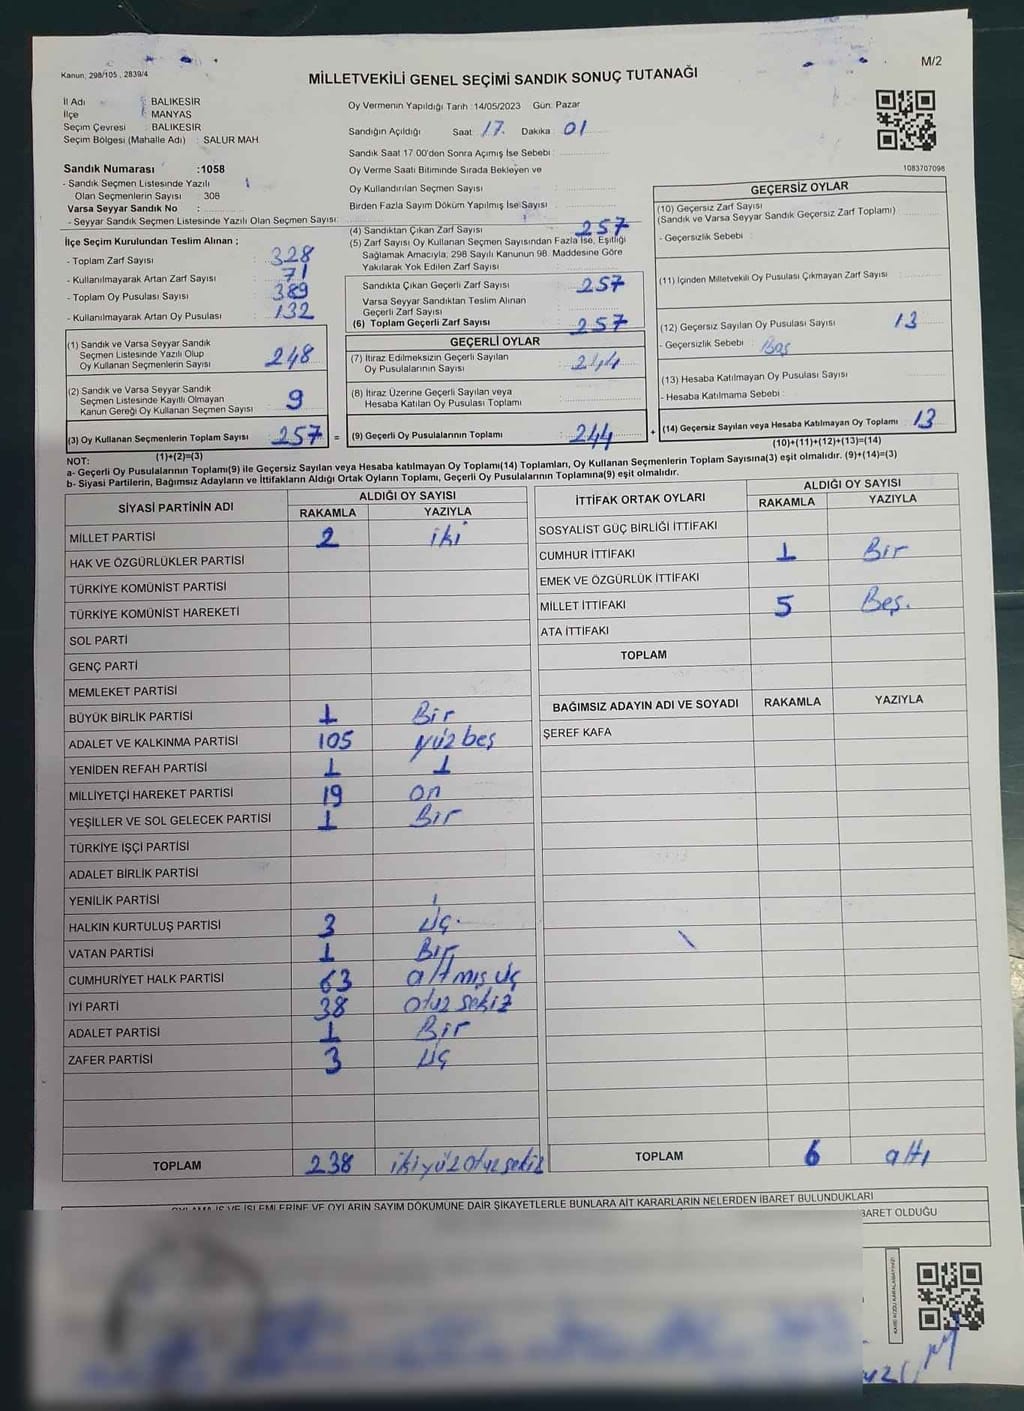 Kanun, 298/105 , 2839/4
M/2
MİLLETVEKİLİ GENEL SEÇİMİ SANDIK SONUÇ TUTANAĞI
İl Adı : BALIKESİR
İlçe : MANYAS
Seçim Çevresi : BALIKESİR
Seçim Bölgesi (Mahalle Adı) : SALUR MAH
Sandık Numarası :1058
- Sandık Seçmen Listesinde Yazılı
Olan Seçmenlerin Sayısı : 308
Varsa Seyyar Sandık No :
- Seyyar Sandık Seçmen Listesinde Yazılı Olan Seçmen Sayısı :
Oy Vermenin Yapıldığı Tarih :14/05/2023 Gün: Pazar
Sandığın Açıldığı Saat 17. Dakika : 01
Sandık Saat 17.00'den Sonra Açımış İse Sebebi :
Oy Verme Saati Bitiminde Sırada Bekleyen ve
Oy Kullandırılan Seçmen Sayısı :
Birden Fazla Sayım Döküm Yapılmış İse Sayısı :
1083707098
İlçe Seçim Kurulundan Teslim Alınan ;
- Toplam Zarf Sayısı : 328
- Kullanılmayarak Artan Zarf Sayısı : 71
- Toplam Oy Pusulası Sayısı : 389
- Kullanılmayarak Artan Oy Pusulası : 132
(1) Sandık ve Varsa Seyyar Sandık
Seçmen Listesinde Yazılı Olup
Oy Kullanan Seçmenlerin Sayısı : 248
(2) Sandık ve Varsa Seyyar Sandık
Seçmen Listesinde Kayıtlı Olmayan
Kanun Gereği Oy Kullanan Seçmen Sayısı : 9
(3) Oy Kullanan Seçmenlerin Toplam Sayısı : 257 =
(1)+(2)=(3)
(4) Sandıktan Çıkan Zarf Sayısı : 257
(5) Zarf Sayısı Oy Kullanan Seçmen Sayısından Fazla İse, Eşitliği
Sağlamak Amacıyla, 298 Sayılı Kanunun 98. Maddesine Göre
Yakılarak Yok Edilen Zarf Sayısı :
Sandıkta Çıkan Geçerli Zarf Sayısı : 257
Varsa Seyyar Sandıktan Teslim Alınan
Geçerli Zarf Sayısı :
(6) Toplam Geçerli Zarf Sayısı : 257
GEÇERLİ OYLAR
(7) İtiraz Edilmeksizin Geçerli Sayılan
Oy Pusulalarının Sayısı : 244
(8) İtiraz Üzerine Geçerli Sayılan veya
Hesaba Katılan Oy Pusulası Toplamı :
(9) Geçerli Oy Pusulalarının Toplamı : 244 +
GEÇERSİZ OYLAR
(10) Geçersiz Zarf Sayısı
(Sandık ve Varsa Seyyar Sandık Geçersiz Zarf Toplamı) :
- Geçersizlik Sebebi :
(11) İçinden Milletvekili Oy Pusulası Çıkmayan Zarf Sayısı :
(12) Geçersiz Sayılan Oy Pusulası Sayısı : 13
- Geçersizlik Sebebi : Boş
(13) Hesaba Katılmayan Oy Pusulası Sayısı :
- Hesaba Katılmama Sebebi :
(14) Geçersiz Sayılan veya Hesaba Katılmayan Oy Toplamı : 13
(10)+(11)+(12)+(13)=(14)
NOT:
a- Geçerli Oy Pusulalarının Toplamı(9) ile Geçersiz Sayılan veya Hesaba katılmayan Oy Toplamı(14) Toplamları, Oy Kullanan Seçmenlerin Toplam Sayısına(3) eşit olmalıdır. (9)+(14)=(3)
b- Siyasi Partilerin, Bağımsız Adayların ve İttifakların Aldığı Ortak Oyların Toplamı, Geçerli Oy Pusulalarının Toplamına(9) eşit olmalıdır.
SİYASİ PARTİNİN ADI ALDIĞI OY SAYISI
RAKAMLA YAZIYLA
MİLLET PARTİSİ 2 iki
HAK VE ÖZGÜRLÜKLER PARTİSİ
TÜRKİYE KOMÜNİST PARTİSİ
TÜRKİYE KOMÜNİST HAREKETİ
SOL PARTİ
GENÇ PARTİ
MEMLEKET PARTİSİ
BÜYÜK BİRLİK PARTİSİ 1 Bir
ADALET VE KALKINMA PARTİSİ 105 yüz beş
YENİDEN REFAH PARTİSİ 1 1
MİLLİYETÇİ HAREKET PARTİSİ 19 on
YEŞİLLER VE SOL GELECEK PARTİSİ 1 Bir
TÜRKİYE İŞÇİ PARTİSİ
ADALET BİRLİK PARTİSİ
YENİLİK PARTİSİ
HALKIN KURTULUŞ PARTİSİ 3 üç.
VATAN PARTİSİ 1 Bir
CUMHURİYET HALK PARTİSİ 63 altmış üç
İYİ PARTİ 38 otuz sekiz
ADALET PARTİSİ 1 Bir
ZAFER PARTİSİ 3 üç
TOPLAM 238 ikiyüz otuz sekiz
İTTİFAK ORTAK OYLARI ALDIĞI OY SAYISI
RAKAMLA YAZIYLA
SOSYALİST GÜÇ BİRLİĞİ İTTİFAKI
CUMHUR İTTİFAKI 1 Bir
EMEK VE ÖZGÜRLÜK İTTİFAKI
MİLLET İTTİFAKI 5 Beş.
ATA İTTİFAKI
TOPLAM
BAĞIMSIZ ADAYIN ADI VE SOYADI RAKAMLA YAZIYLA
ŞEREF KAFA
TOPLAM 6 altı
OYLAMA İŞ VE İŞLEMLERİNE VE OYLARIN SAYIM DÖKÜMÜNE DAİR ŞİKAYETLERLE BUNLARA AİT KARARLARIN NELERDEN İBARET BULUNDUKLARI
BARET OLDUĞU